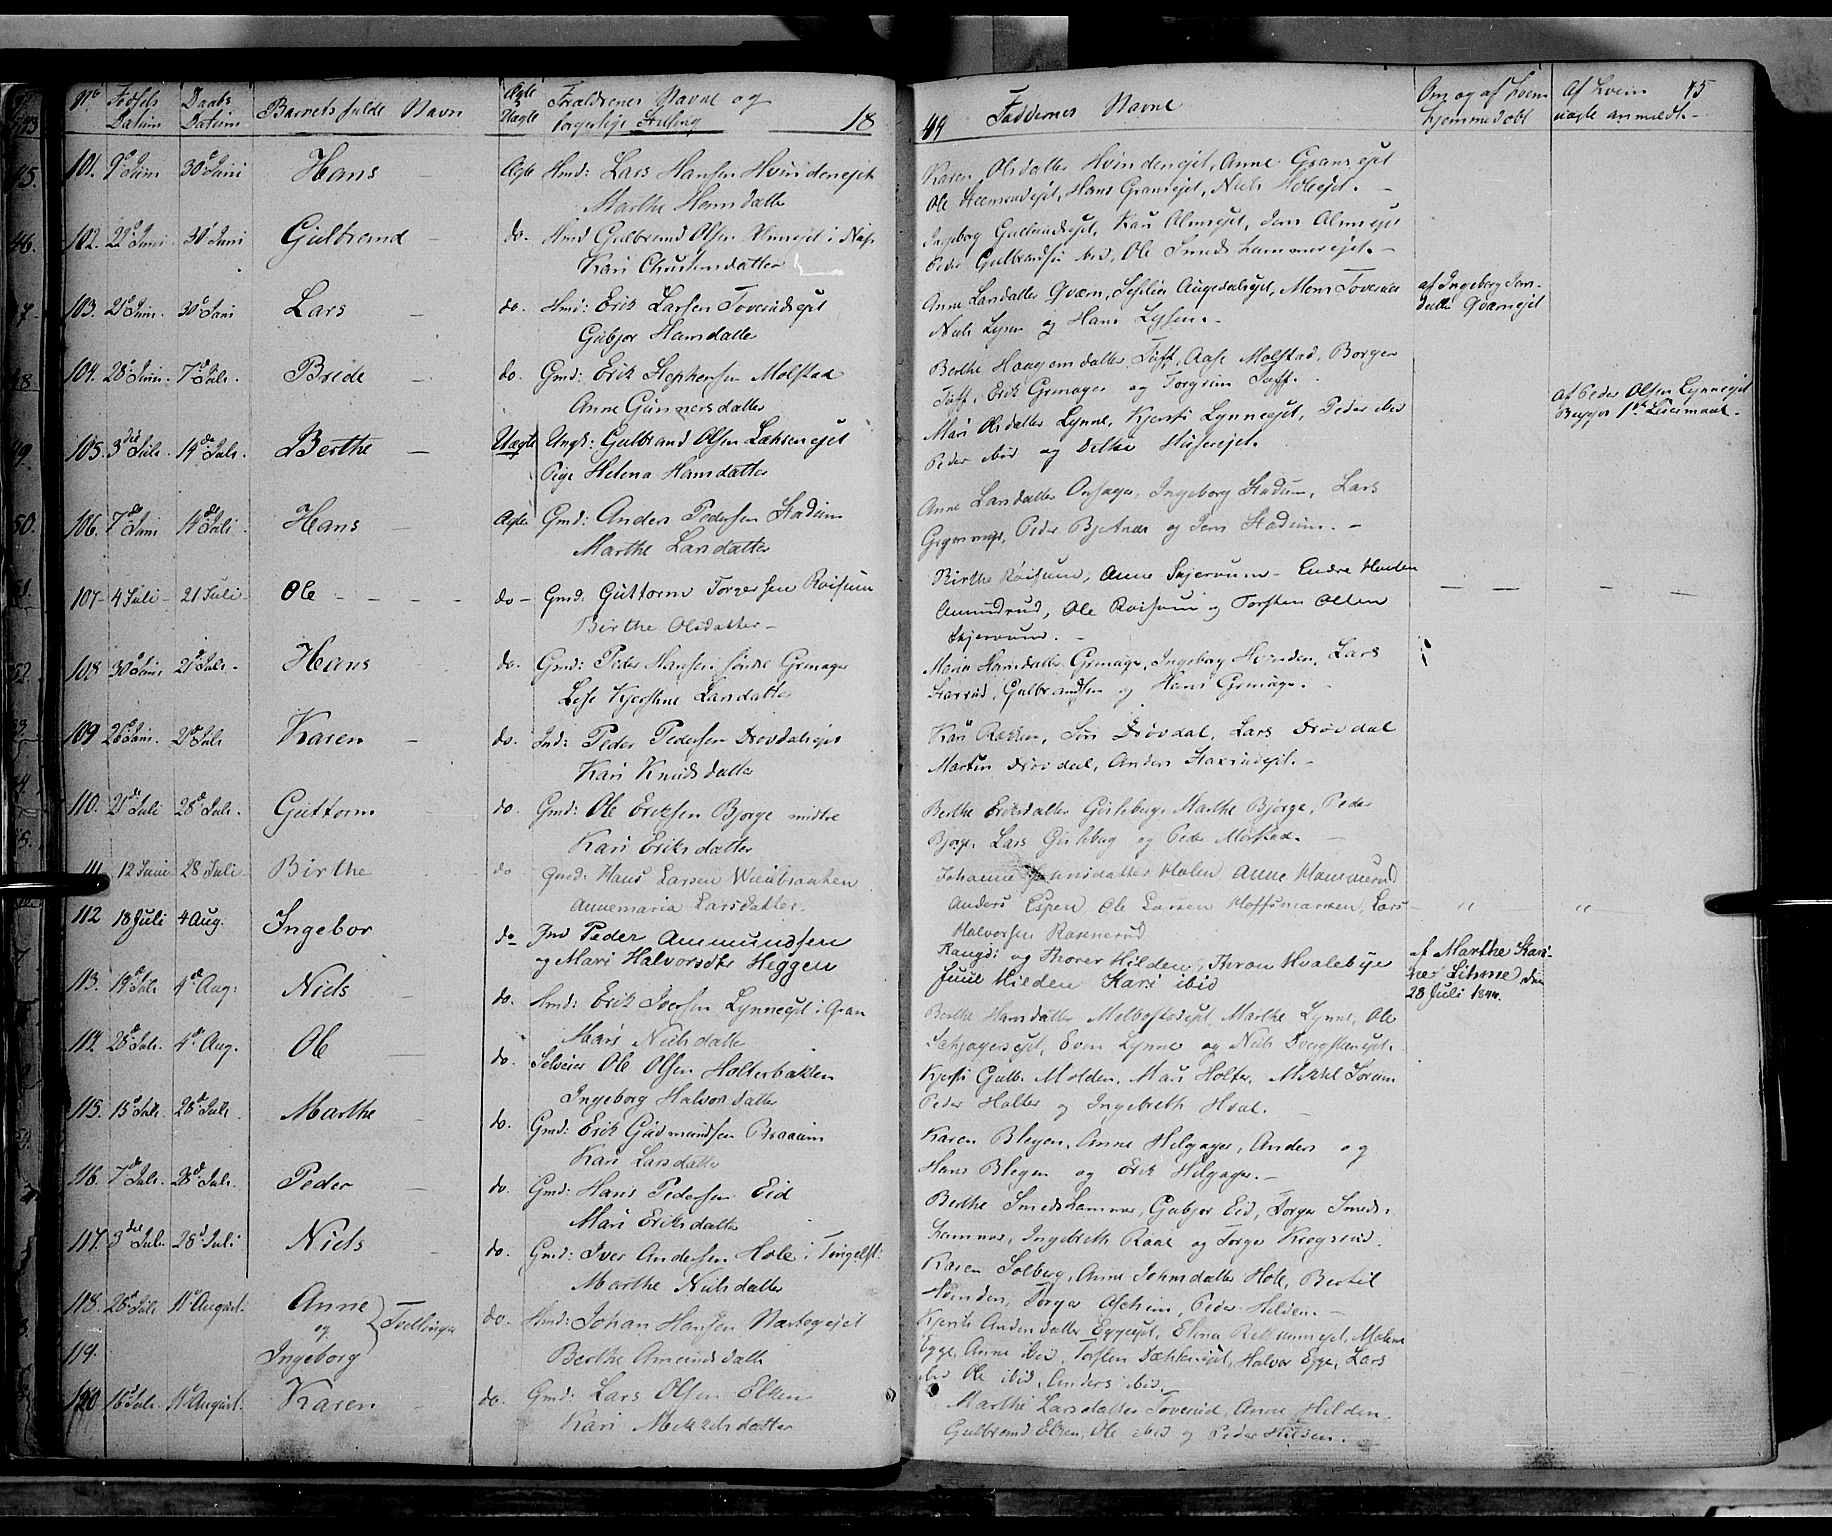 No Fødsels Datum Daabs Datum Barnets fulde Navn Ægte Uægte Forældrenes Navne og borgerlige Stilling 18
44 Faddernes Navne Om og af hvem hjemmedøbt Af hvem uægte anmeldt. 45
101. 9d Juni 30d Juni Hans Ægte Hmd: Lars Hansen Hvindenejet
Marthe Hansdatter
Karen Olsdatter Hvindenejet, Anne Gransejet
Ole Hans Gransejet, Niels
102. 22d Juni 30 Juni Gulbrand do. Hmd Gulbrand Olsen i Næs
Kari Christensdatter
Ingeborg Kari Almsejet, Jens Almsejet
Peder Gulbrandsen ibid, Ole Smedshammerejet.
103. 21d Juni. 30d Juni Lars do. Hmd: Erik Larsen Toverudsejet
Gubjør Hansdatter
Anne Larsdatter Qværn, Mons Toverud
Niels Lysen og Hans Lysen.
af Ingeborg Jensdatter Qværnejet
104. 28d Juni. 7d Juli. Brede do. Gmd: Erik Stephensen Molstad
Anne Gunnersdatter
Berthe Haagensdatter Tuft, Aase Molstad, Borger
Tuft, Erik Grinager og Torgrim Tuft.
105. 3die Juli. 14de Juli. Berthe Uægte Ungk: Gulbrand Olsen Laksenejet
Pige Helena Hansdatter
Mari Olsdatter Lynne, Kjersti Lynneejet, Peder ibid
Peder ibid og
af Peder Olsen Lynneejet
Begges 1ste Leiermaal.
106. 7de Juni 14de Juli Hans Ægte Gmd: Anders Pedersen Stadum
Marthe Larsdatter
Anne Larsdatter Ingeborg Stadum, Lars
Peder Bjellnæs og Jens Stadum.
107 4 Juli 21 Juli Ole do Gmd: Guttorm Torgersen Røisum
Birthe Olsdatter
Birthe Røisum, Anne Skjervum Endre
Amundrud, Ole Røisum og Torsten Olsen
Skjervum.
108 30d Juni 21d Juli Hans do. Gmd: Peder Hansen søndre Grinager
Lise Kjerstine Larsdatter
Maria Hansdatter Grinager, Ingeborg Hvinden, Lars
Gulbrandsen og Hans Grinager.
109 26d Juni. 21d Juli Karen do. Ind: Peder Pedersen Drøvdalsejet
Kari Knudsdatter
Kari Siri Drøvdal, Lars Drøvdal
Martin Drøvdal, Anders
110. 21d Juli 28d Juli. Guttorm do Gmd: Ole Eriksen Bjørge midtre
Kari Eriksdatter
Berthe Eriksdatter Gisleberg, Marthe Bjørge, Peder
Bjørge, Lars Gisleberg og Peder Morstad.
111 12 Juni 28 Juli Birthe do Gmd: Hans Larsen Wienbraaten
Annemaria Larsdatter.
Johanne Hansdatter Holen Anne Hammerud
Anders Espen Ole Larsen Hoffsmarken, Lars
Halvorsen
112 18 Juli 4 Aug. Ingebor do Ind Peder Ammundsen
og Mari Halvorsdtr Heggen
Rangdi og Thorer Hilden, Thron Hvalebye
Juul Hilden Kari ibid
af Marthe Karine Lihme den
28 Juli 1844.
113. 19d Juli 4de Aug: Niels do. Hmd: Erik Iversen Lynneejet i Gran
Mari Nielsdatter
Berthe Hansdatter Melbostadejet, Marthe Lynne, Ole
Even Lynne og Niels Dvergstenejet.
114. 28d Juli. 4de Aug. Ole do. Selveier Ole Olsen Holterbakken
Ingeborg Halvorsdatter
Kjersti Gulbr. Molden, Mari Holter, Mikkel Sorum
Peder Holter og Ingebreth Hval.
115. 15d Juli. 28d Juli. Marthe do. Gmd: Erik Gudmundsen Braaum
Kari Larsdatter
Karen Blegen, Anne Helgager, Anders og
Hans Blegen og Erik Helgager.
116. 7de Juli. 28d Juli. Peder do. Gmd: Hans Pedersen Eid
Mari Eriksdatter
Berthe Smedshammer, Gubjør Eid, Torger Smedshammer,
Ingebreth Raae og Torger Krogsrud.
117. 3die Juli. 28d Juli Niels do. Gmd: Iver Andersen Hole i Tingelst:
Marthe Nielsdatter
Karen Solberg, Anne Johnsdatter Hole, Bertil
Hvinden, Torger Aschim, Peder Hilden.
118. 28d Juli 11te August. Anne og Tvillinger do. Hmd: Johan Hansen
119. Ingeborg Berthe Amundsdatter
Kjersti Andersdatter Eggeejet, Elena Malene
Egge, Anne ibid, Torsten Halvor Egge, Lars
ibid Ole ibid, Anders ibid.
120 16d Juli. 11te August. Karen do. Gmd: Lars Olsen Elken
Kari Mikkelsdatter
Marthe Larsdatter Toverud, Anne Hilden,
Gulbrand Elken, Ole ibid og Peder Hilden.